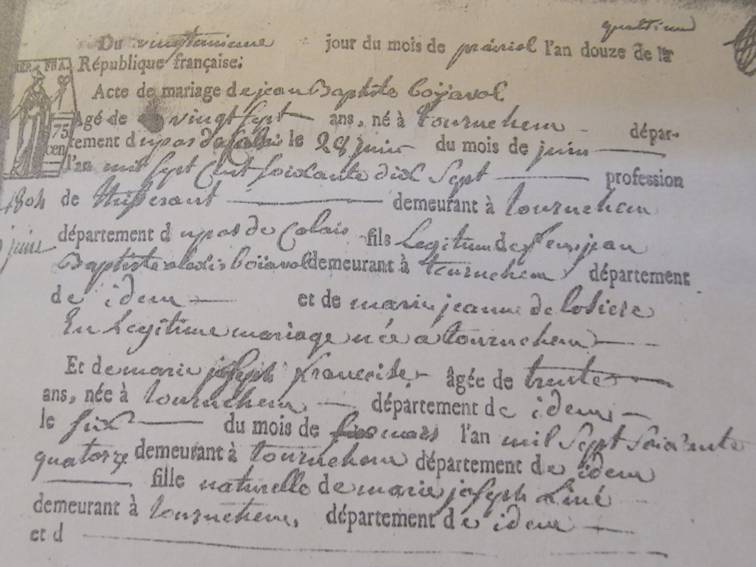 quattieme
Du vingtunieme jour du mois de prairial l'an douze de la
République française;
Acte de mariage de jean Baptiste Boijavol
Agé de vingt sept ans, né à tournehem dépar-
75 cen
tement d u pas de Calais le 28 juin du mois de juin
l'an mil sept Cent soixante dix sept profession
1804 de tisserant demeurant à tournehem
juin
département d u pas de Calais fils legitime de feu jean
Baptiste Boijavol demeurant à tournehem département
de idem et de marie jeanne
En legitime mariage née a tournehem
Et de marie joseph francoise âgée de trente
ans, née à tournehem département de idem
le six du mois de mars l'an mil sept soixante
quatorze demeurant à tournehem département de idem
fille naturelle de marie joseph Liné
demeurant à tournehem, département d e idem
et d